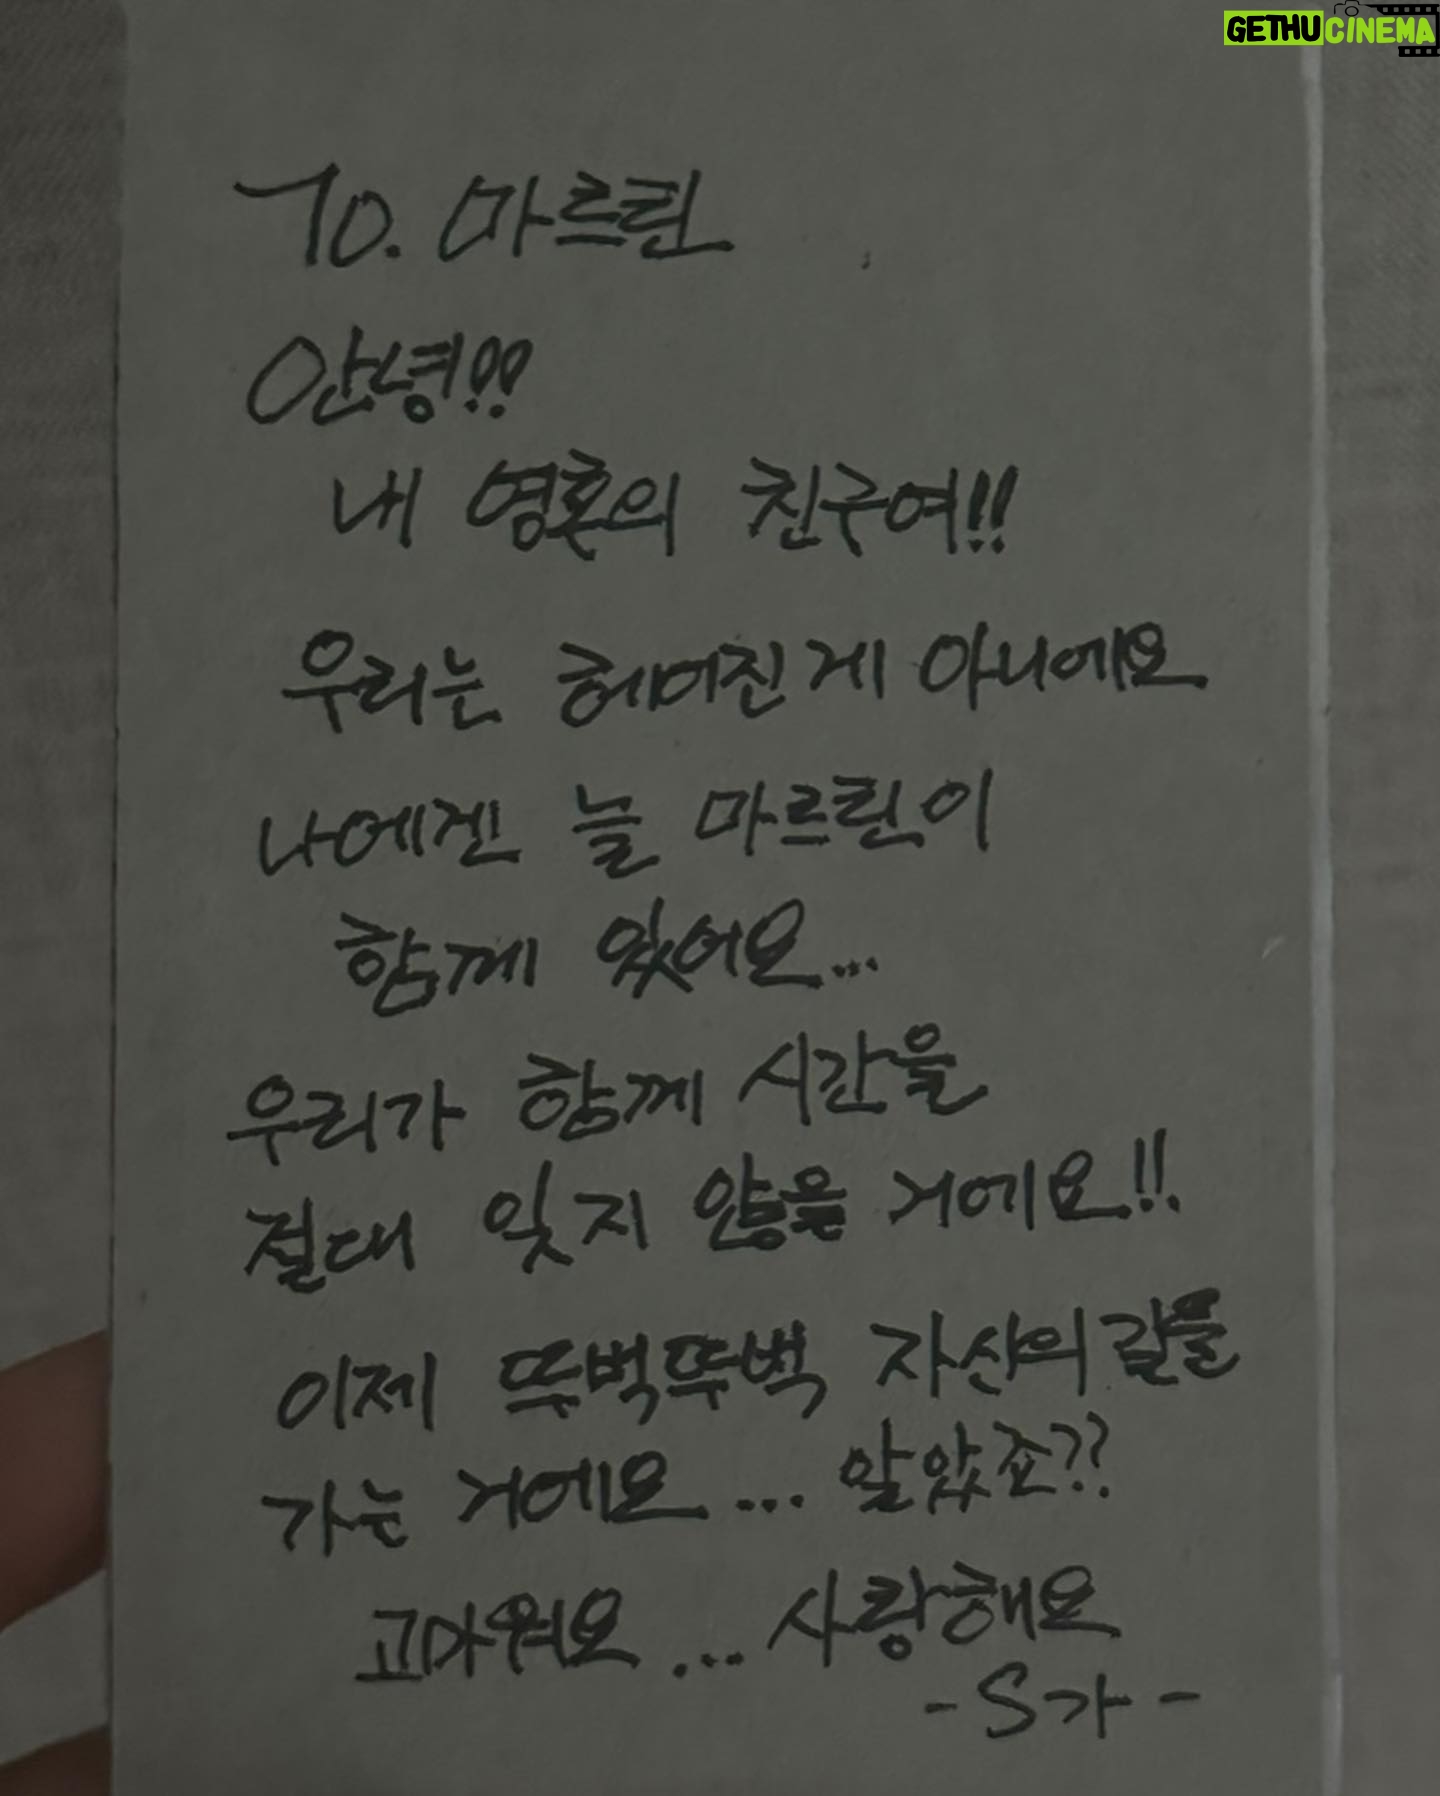 GETHUCINEMA
TO. 마르틴
안녕!!
내 영혼의 친구여!!
우리는 헤어진게 아니에요
나에겐 늘 마르틴이
함께 있어요...
우리가 함께 시간을
절대 잊지 않을 거에요!!
이제 뚜벅뚜벅 자신의 길을
가는 거에요... 알았죠??
고마워요... 사랑해요
- S가 -